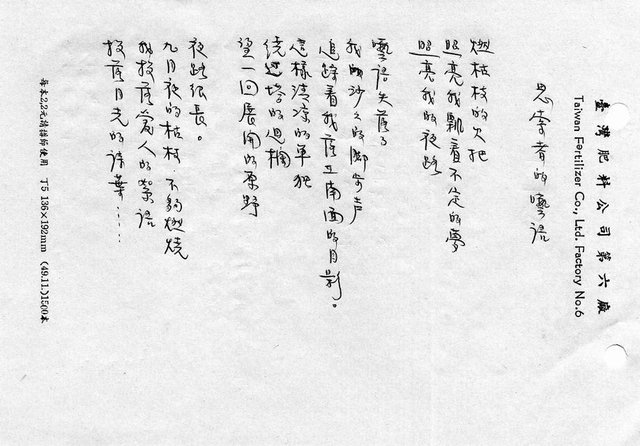 臺灣肥料公司第六廠
Taiwan Fertilizer Co., Ltd. Factory No.6
思索者的囈語
燃枯枝的火把
照亮我飄着不定的夢
照亮我的夜路
囈語失落了
我的沙沙的腳步声
追踪着我落在南面的月影。
這樣清涼的單獨
繞過塔的迴欄
望一回展開的原野
夜路很長。
九月夜的枯枝，不夠燃燒
我投落愛人的絮語
投落月光的詩葉……
每本2.2元請撙節使用　T5 136×192mm　(49.11.)1500本